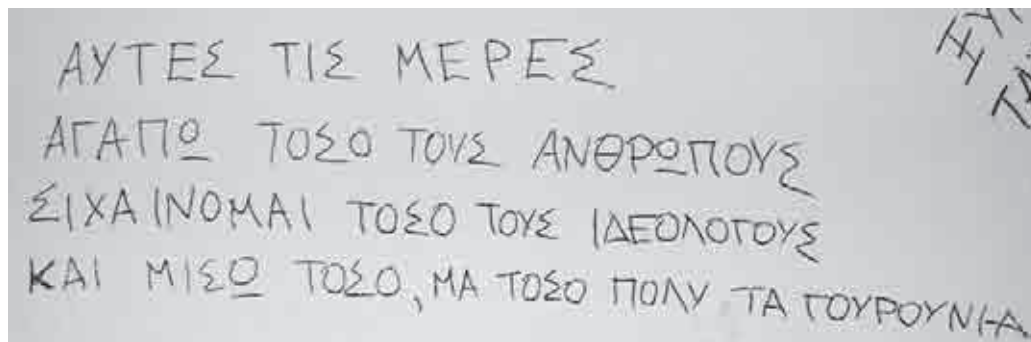 ΑΥΤΕΣ ΤΙΣ ΜΕΡΕΣ
ΑΓΑΠΩ ΤΟΣΟ ΤΟΥΣ ΑΝΘΡΩΠΟΥΣ
ΣΙΧΑΙΝΟΜΑΙ ΤΟΣΟ ΤΟΥΣ ΙΔΕΟΛΟΓΟΥΣ
ΚΑΙ ΜΙΣΩ ΤΟΣΟ, ΜΑ ΤΟΣΟ ΠΟΛΥ ΤΑ ΓΟΥΡΟΥΝΙΑ